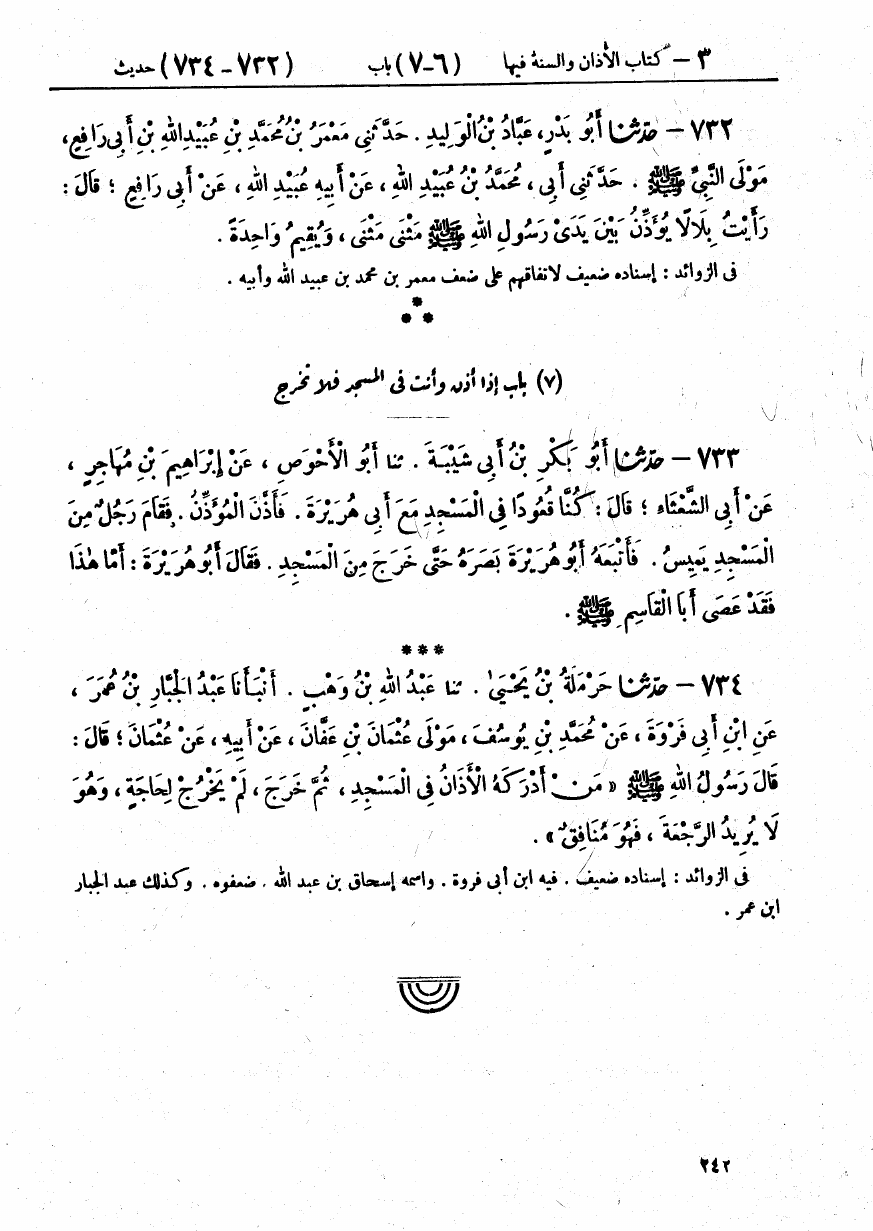 ٣ – كتاب الأذان والسنة فيها (٦-٧) باب (٧٣٢-٧٣٤) حديث
٧٣٢ – حدّثنا أَبُو بَدْرٍ، عَبَّادُ بْنُ الْوَلِيدِ. حَدَّثَنِي مَعْمَرُ بْنُ مُحَمَّدِ بْنِ عُبَيْدِ اللهِ بْنِ أَبِي رَافِعٍ،
مَوْلَى النَّبِيِّ ﷺ. حَدَّثَنِي أَبِي، مُحَمَّدُ بْنُ عُبَيْدِ اللهِ، عَنْ أَبِيهِ عُبَيْدِ اللهِ، عَنْ أَبِي رَافِعٍ؛ قَالَ:
رَأَيْتُ بِلَالًا يُؤَذِّنُ بَيْنَ يَدَىْ رَسُولِ اللهِ ﷺ مَثْنَى مَثْنَى، وَيُقِيمُ وَاحِدَةً.
فى الزوائد: إسناده ضعيف لاتفاقهم على ضعف معمر بن محمد بن عبيد الله وأبيه.
*
* *
(٧) باب إذا أذن وأنت فى المسجد فلا تخرج
٧٣٣ – حدّثنا أَبُو بَكْرِ بْنُ أَبِي شَيْبَةَ. ثنا أَبُو الْأَحْوَصِ، عَنْ إِبْرَاهِيمَ بْنِ مُهَاجِرٍ،
عَنْ أَبِي الشَّعْثَاءِ؛ قَالَ: كُنَّا قُعُودًا فِي الْمَسْجِدِ مَعَ أَبِي هُرَيْرَةَ. فَأَذَّنَ الْمُؤَذِّنُ. فَقَامَ رَجُلٌ مِنَ
الْمَسْجِدِ يَمِيسُ. فَأَتْبَعَهُ أَبُو هُرَيْرَةَ بَصَرَهُ حَتَّى خَرَجَ مِنَ الْمَسْجِدِ. فَقَالَ أَبُو هُرَيْرَةَ: أَمَّا هٰذَا
فَقَدْ عَصَى أَبَا الْقَاسِمِ ﷺ.
* * *
٧٣٤ – حدّثنا حَرْمَلَةُ بْنُ يَحْيَىٰ. ثنا عَبْدُ اللهِ بْنُ وَهْبٍ. أَنْبَأَنَا عَبْدُ الْجَبَّارِ بْنُ عُمَرَ،
عَنِ ابْنِ أَبِي فَرْوَةَ، عَنْ مُحَمَّدِ بْنِ يُوسُفَ، مَوْلَى عُثْمَانَ بْنِ عَفَّانَ، عَنْ أَبِيهِ، عَنْ عُثْمَانَ؛ قَالَ:
قَالَ رَسُولُ اللهِ ﷺ «مَنْ أَدْرَكَهُ الْأَذَانُ فِي الْمَسْجِدِ، ثُمَّ خَرَجَ، لَمْ يَخْرُجْ لِحَاجَةٍ، وَهُوَ
لَا يُرِيدُ الرَّجْعَةَ، فَهُوَ مُنَافِقٌ».
فى الزوائد: إسناده ضعيف. فيه ابن أبى فروة. واسمه إسحاق بن عبد الله. ضعفوه. وكذلك عبد الجبار
ابن عمر.
٢٤٢